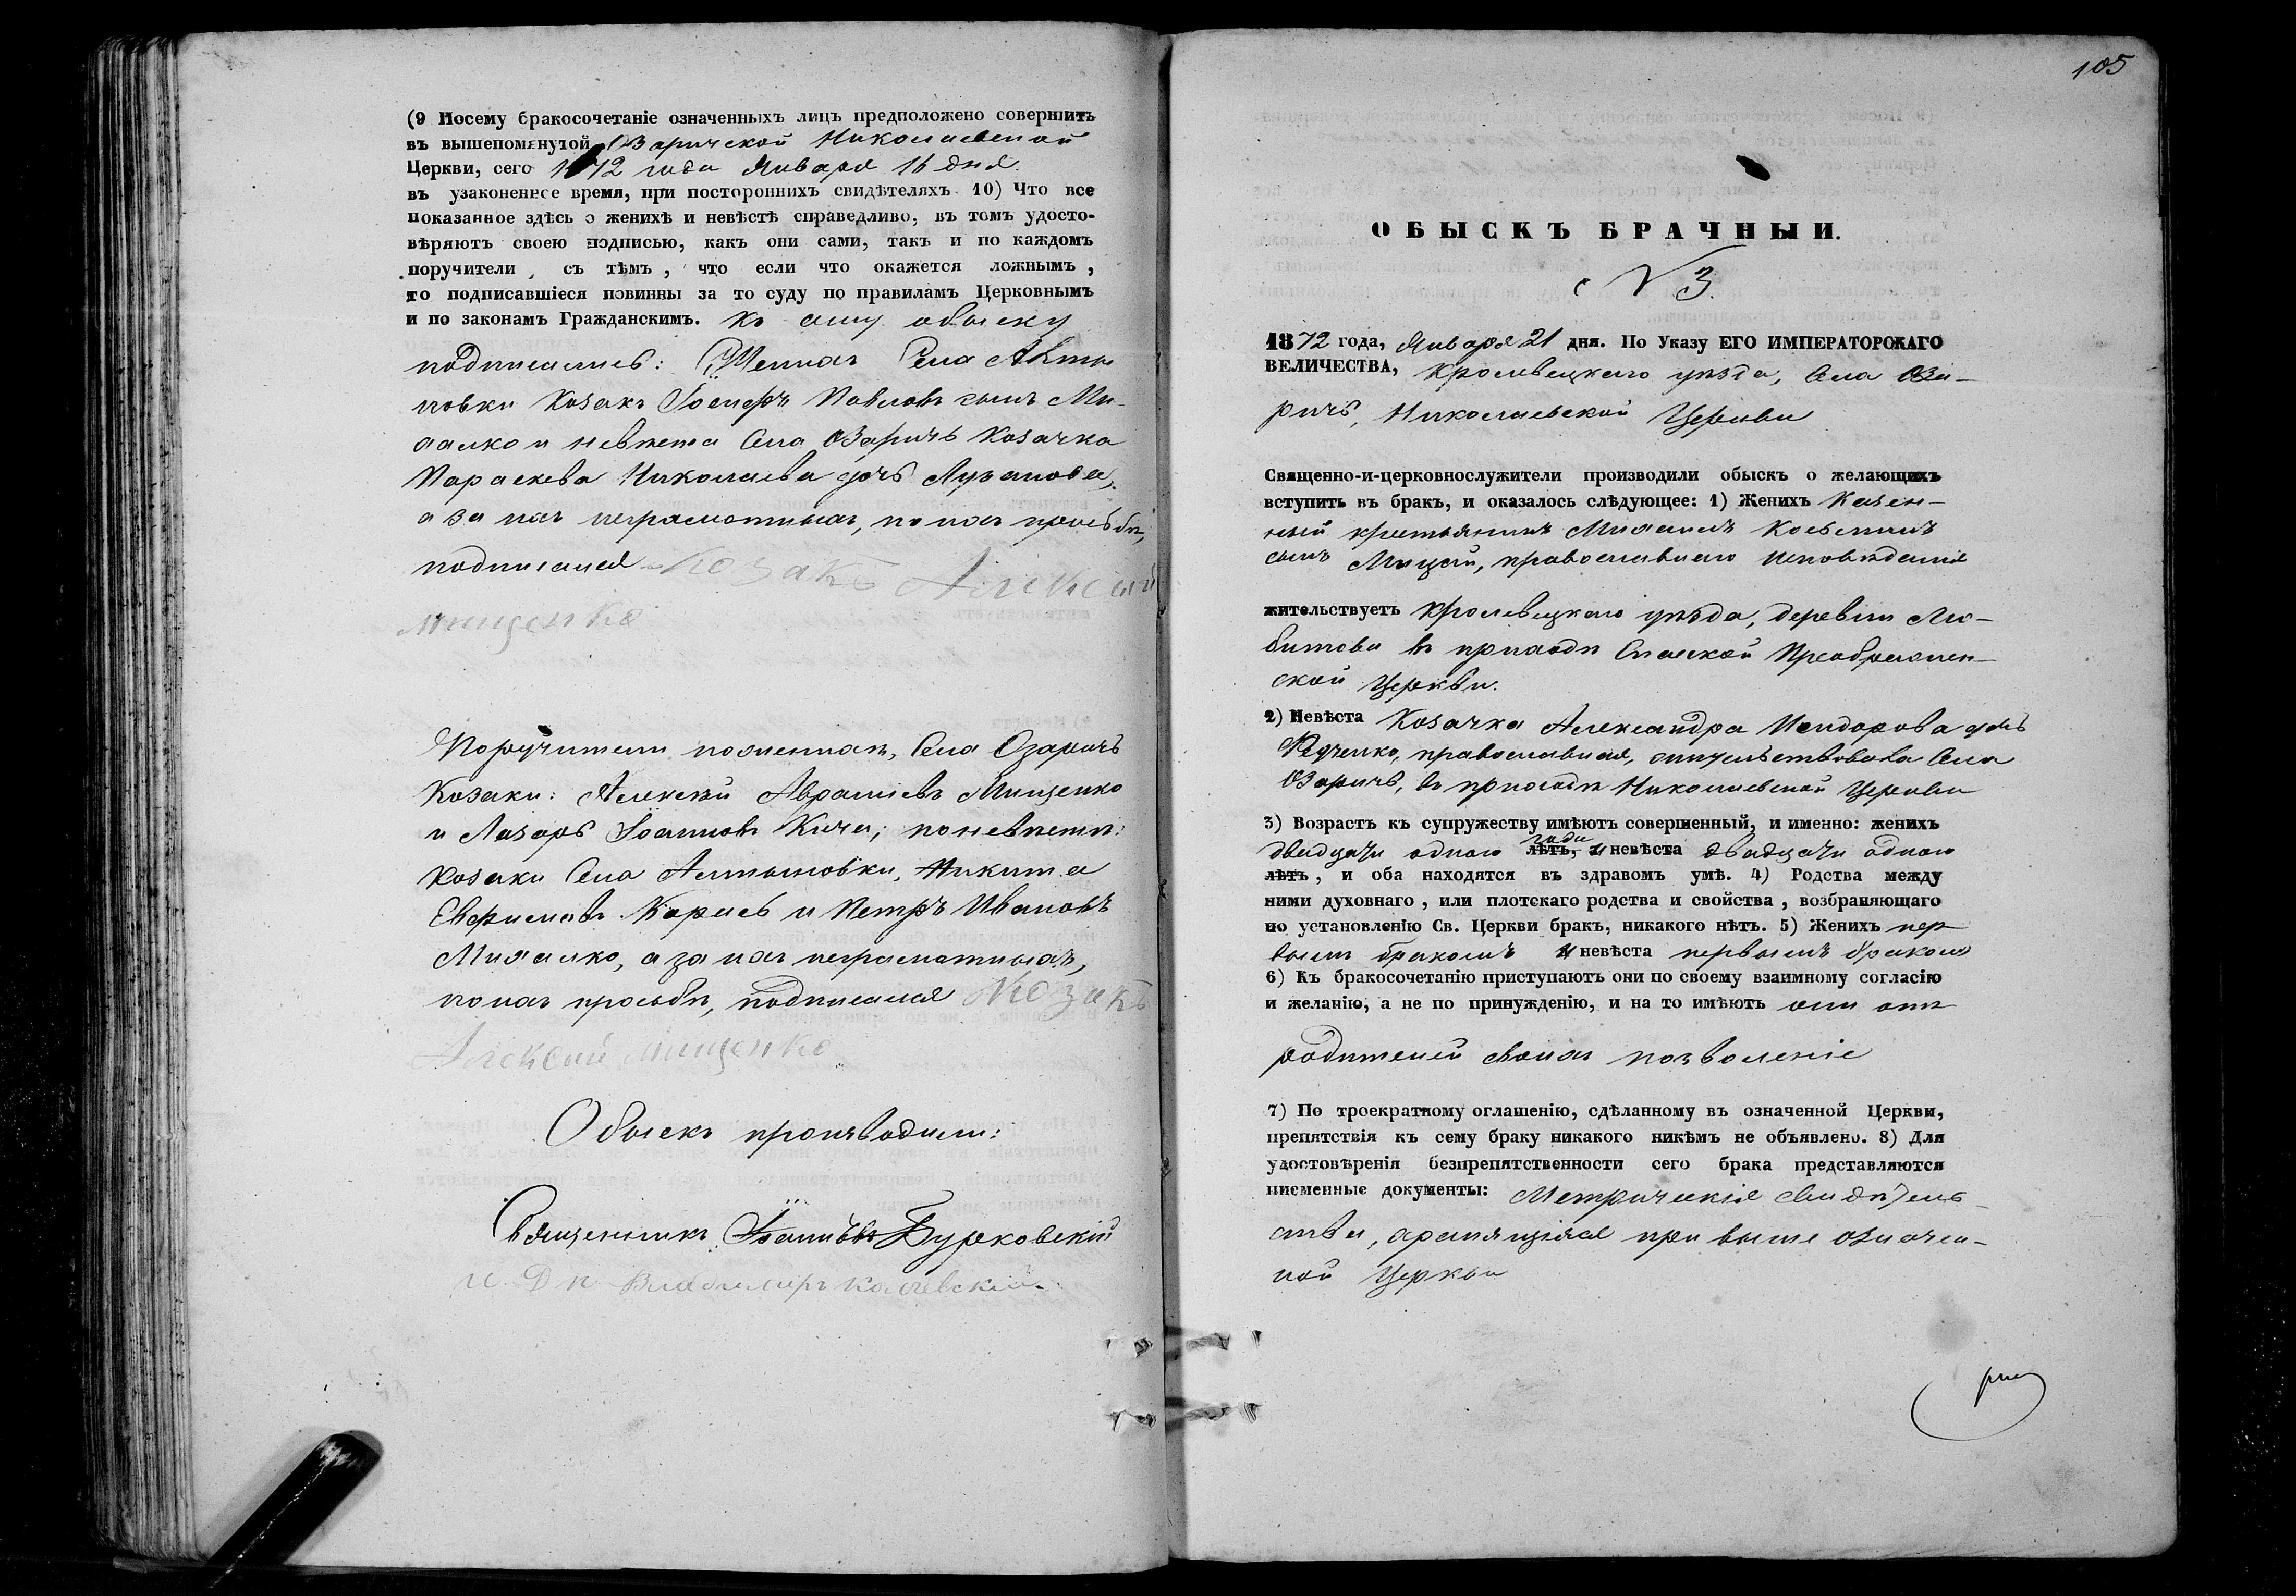 (9 Посему бракосочетаніе означенныхъ лицъ предположено совершить
въ вышепомянутой Озарической Николаевской
Церкви, сего 1872 года Января 16 дня
въ узаконенное время, при постороннихъ свидѣтеляхъ 10) Что все
показанное здѣсь о женихѣ и невѣстѣ справедливо, въ томъ удосто-
вѣряютъ своею подписью, какъ они сами, такъ и по каждомъ
поручители, съ тѣмъ, что если что окажется ложнымъ,
то подписавшіеся повинны за то суду по правиламъ Церковнымъ
и по законамъ Гражданскимъ. Къ сему обыску
подписались: Женихъ Села Алты
новки Козакъ Іосифъ Павловъ сынъ Ми-
халко и невѣста Села Озаричъ Козачка
Параскева Николаева дочь
а за нихъ неграмотныхъ, по ихъ прозьбѣ,
подписался Козакъ Алексѣй
Мищенко
Поручители по женихѣ, Села Озаричъ
Козаки: Алексѣй Авраміевъ Мищенко
и Лазарь Іоанновъ Кича; по невѣстѣ:
Козаки Села Алтыновки, Никита
Евфимовъ Карась и Петръ Ивановъ
Михалко, а за ихъ неграмотныхъ,
по ихъ прозьбѣ, подписался Козакъ
Алексѣй Мищенко
Обыскъ производили:
Священникъ Іоаннъ Бурковскій
И. Д. п. Владимиръ
105
ОБЫСКЪ БРАЧНЫЙ.
N 3.
1872 года, Января 21 дня. По Указу ЕГО ИМПЕРАТОРСКАГО
ВЕЛИЧЕСТВА, Кролевецкаго уѣзда, Села Оза-
ричъ, Николаевской Церкви
Священно-и-церковнослужители производили обыскъ о желающихъ
вступить въ бракъ, и оказалось слѣдующее: 1) Женихъ Казен-
ный крестьянинъ Михаилъ Косьминъ
сынъ Мицай, православнаго исповѣданія
жительствуетъ Кролевецкаго уѣзда, деревни Лю-
битова въ приходѣ Спаской Преображен-
ской Церкви.
2) Невѣста Козачка Александра Исидорова дочь
Редченко, православная, жительствовала Села
Озаричъ, въ приходѣ Николаевской Церкви
3) Возрастъ къ супружеству имѣютъ совершенный, и именно: женихъ
двадцати одного лѣтъ, года и невѣста двадцати одного
лѣтъ, и оба находятся въ здравомъ умѣ. 4) Родства между
ними духовнаго, или плотскаго родства и свойства, возбраняющаго
по установленію Св. Церкви бракъ, никакого нѣтъ. 5) Женихъ пер
вымъ бракомъ и невѣста первымъ бракомъ
6) Къ бракосочетанію приступаютъ они по своему взаимному согласію
и желанію, а не по принужденію, и на то имѣютъ они отъ
родителей своихъ позволеніе
7) По троекратному оглашенію, сдѣланному въ означенной Церкви,
препятствія къ сему браку никакого никѣмъ не объявлено. 8) Для
удостовѣренія безпрепятственности сего брака представляются
писменные документы: Метрическія свидѣтель-
ства, хранящіяся при выше означен-
ной Церкви